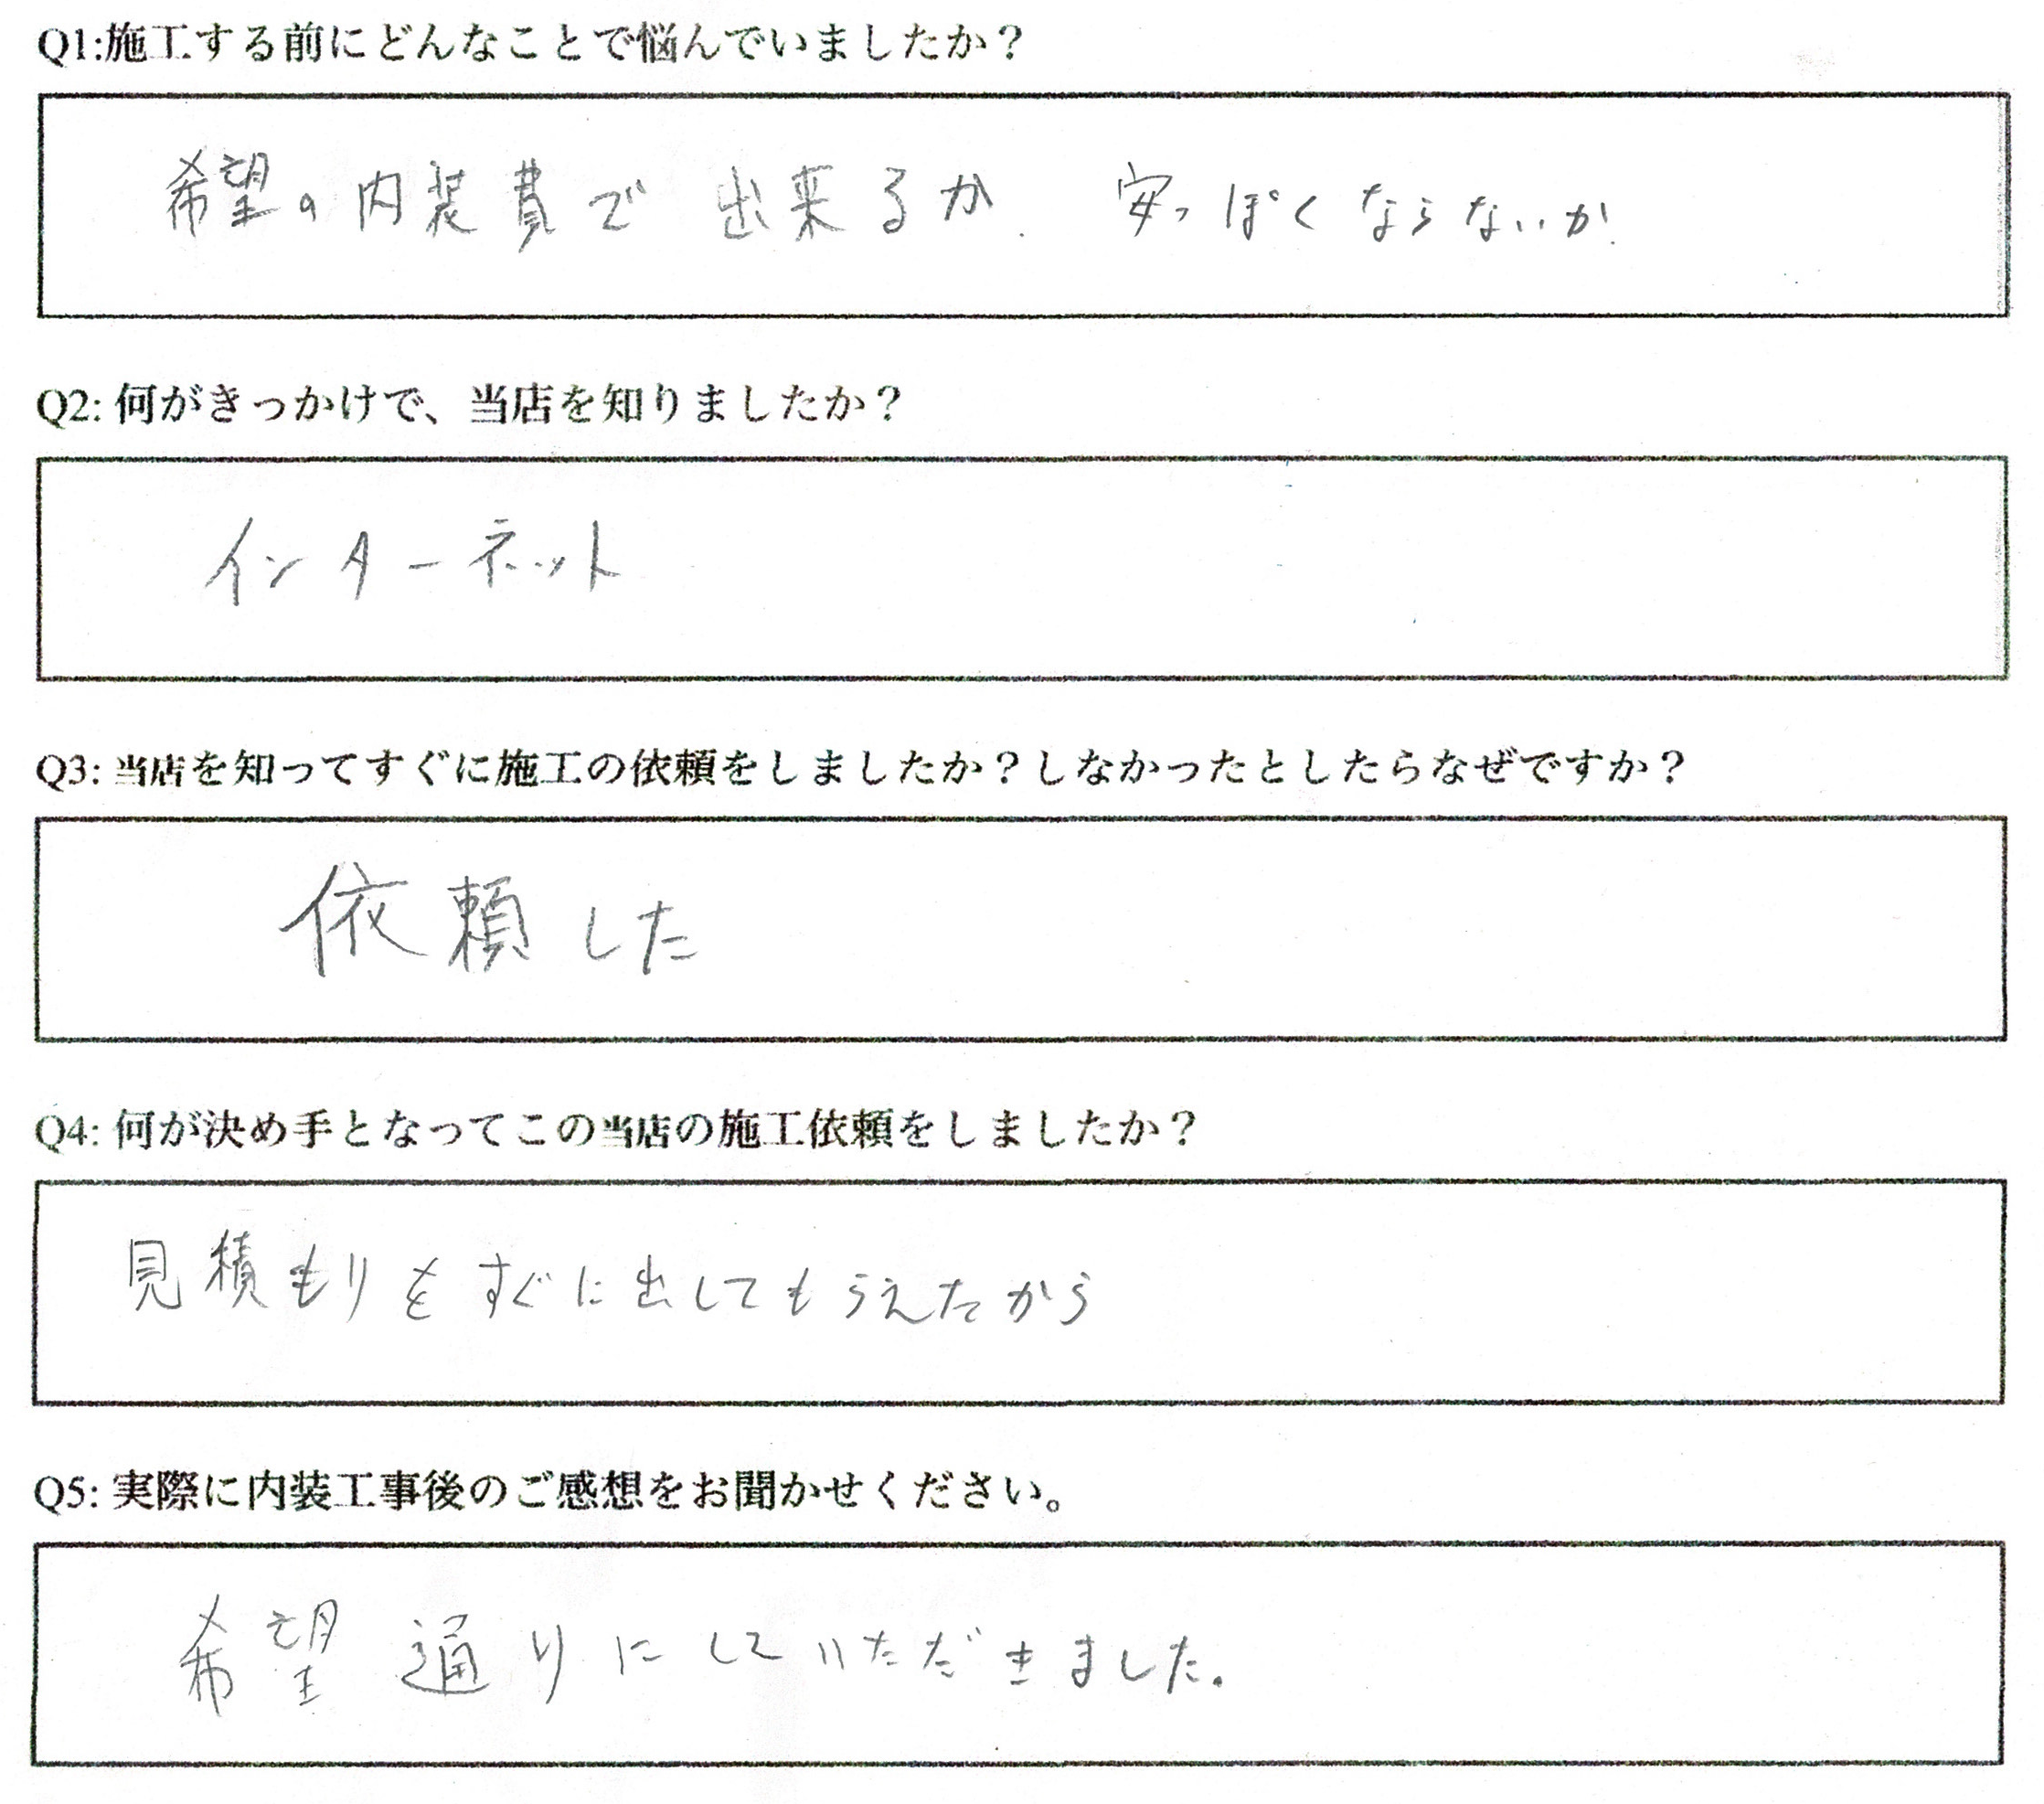 Q1:施工する前にどんなことで悩んでいましたか？
希望の内装費で出来るか. 安っぽくならないか.
Q2: 何がきっかけで、当店を知りましたか？
インターネット
Q3: 当店を知ってすぐに施工の依頼をしましたか？しなかったとしたらなぜですか？
依頼した
Q4: 何が決め手となってこの当店の施工依頼をしましたか？
見積もりをすぐに出してもらえたから
Q5: 実際に内装工事後のご感想をお聞かせください。
希望通りにしていただきました。